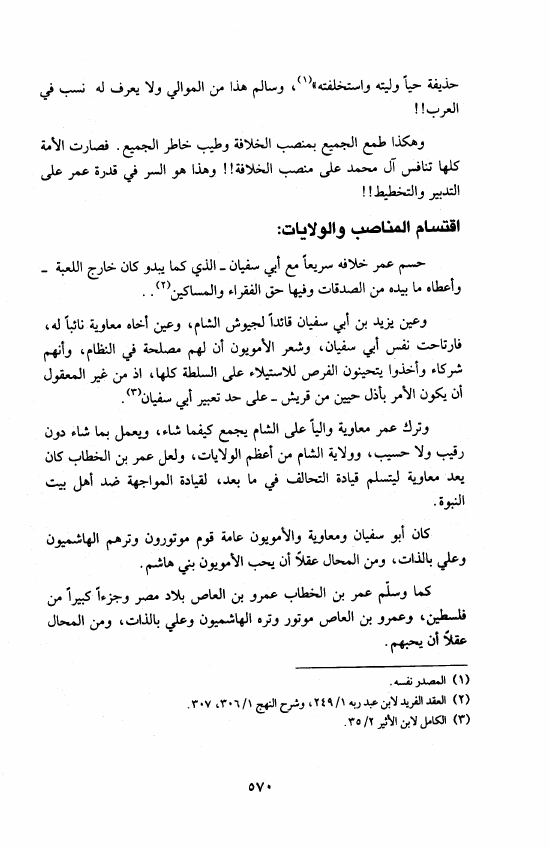 حذيفة حياً وليته واستخلفته»(١)، وسالم هذا من الموالي ولا يعرف له نسب في
العرب!!
وهكذا طمع الجميع بمنصب الخلافة وطيب خاطر الجميع. فصارت الأمة
كلها تنافس آل محمد على منصب الخلافة!! وهذا هو السر في قدرة عمر على
التدبير والتخطيط!!
اقتسام المناصب والولايات:
حسم عمر خلافه سريعاً مع أبي سفيان ـ الذي كما يبدو كان خارج اللعبة ـ
وأعطاه ما بيده من الصدقات وفيها حق الفقراء والمساكين(٢)..
وعين يزيد بن أبي سفيان قائداً لجيوش الشام، وعين أخاه معاوية نائباً له،
فارتاحت نفس أبي سفيان، وشعر الأمويون أن لهم مصلحة في النظام، وأنهم
شركاء وأخذوا يتحينون الفرص للاستيلاء على السلطة كلها، اذ من غير المعقول
أن يكون الأمر بأذل حيين من قريش ـ على حد تعبير أبي سفيان(٣).
وترك عمر معاوية والياً على الشام يجمع كيفما شاء، ويعمل بما شاء دون
رقيب ولا حسيب، وولاية الشام من أعظم الولايات، ولعل عمر بن الخطاب كان
يعد معاوية ليتسلم قيادة التحالف في ما بعد، لقيادة المواجهة ضد أهل بيت
النبوة.
كان أبو سفيان ومعاوية والأمويون عامة قوم موتورون وترهم الهاشميون
وعلي بالذات، ومن المحال عقلاً أن يحب الأمويون بني هاشم.
كما وسلّم عمر بن الخطاب عمرو بن العاص بلاد مصر وجزءاً كبيراً من
فلسطين، وعمرو بن العاص موتور وتره الهاشميون وعلي بالذات، ومن المحال
عقلاً أن يحبهم.
(١) المصدر نفسه.
(٢) العقد الفريد لابن عبد ربه ١/ ٢٤٩، وشرح النهج ١/ ٣٠٦، ٣٠٧.
(٣) الكامل لابن الأثير ٢/ ٣٥.
٥٧٠